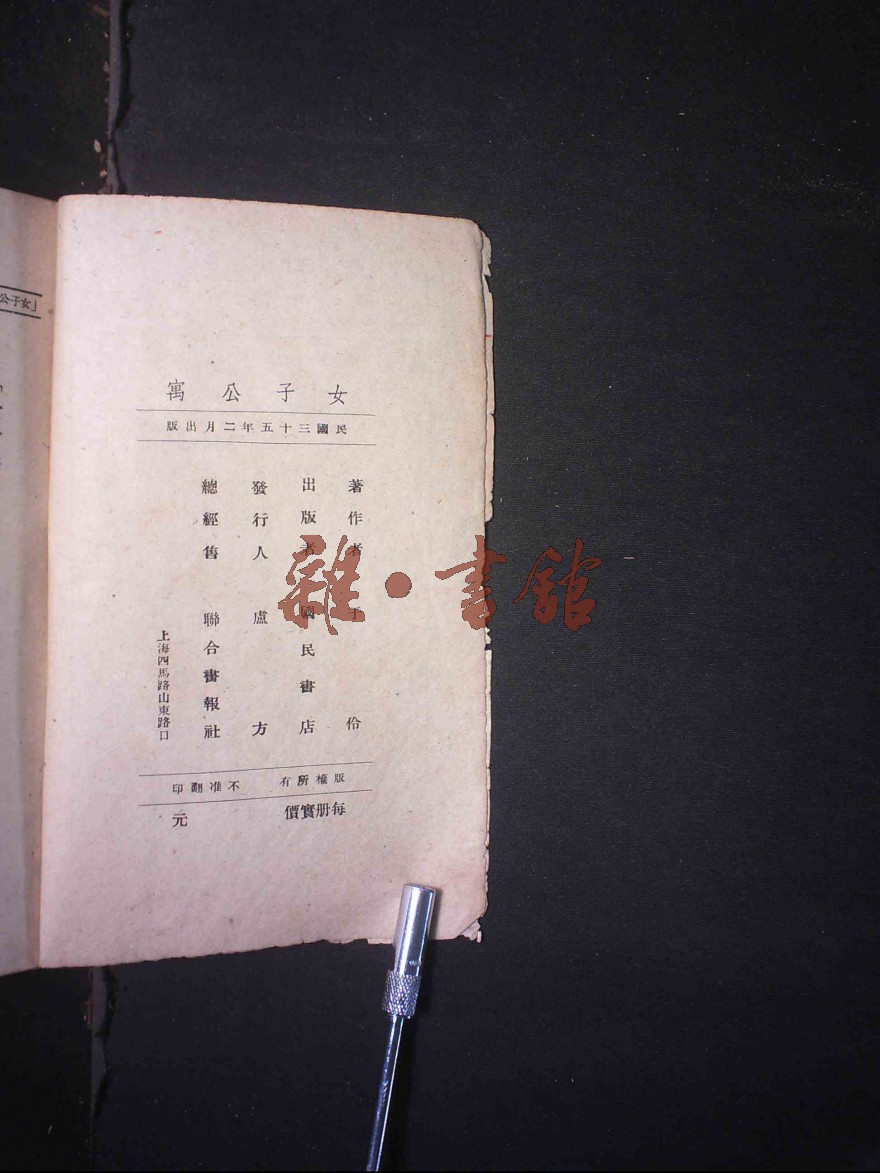 女子公寓
民國三十五年二月出版
著作者 于伶
出版者 國民書店
發行人 盧方
總經售 聯合書報社
上海四馬路山東路口
版權所有 不准翻印
每册實價 元
「女子公
雜·書館